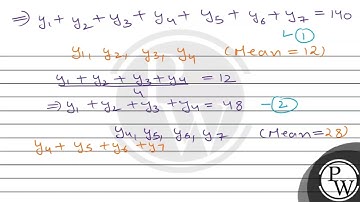 ⇒ y₁ + y₂ + y₃ + y₄ + y₅ + y₆ + y₇ = 140
①
y₁, y₂, y₃, y₄ (Mean = 12)
y₁ + y₂ + y₃ + y₄ / 4 = 12
⇒ y₁ + y₂ + y₃ + y₄ = 48 — ②
y₄, y₅, y₆, y₇ (Mean = 28)
y₄ + y₅ + y₆ + y₇
PW